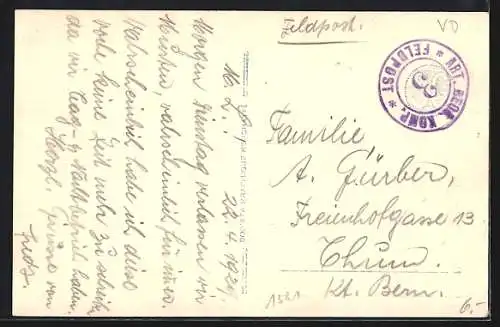 Feldpost.
VD
ART. BEOB. KOMP. * FELDPOST *
3
M. L.!
22.4.1929.
Morgen Dienstag verlassen wir
Murten, wahrscheinlich für immer.
Wahrscheinlich habe ich diese
Woche keine Zeit mehr zu schreiben
da wir Tag- & Nachtbetrieb haben.
Herzl. Grüsse von
Familie
A. Fürber,
Freienhofgasse 13
Thun.
Kt. Bern.
1581
6.-